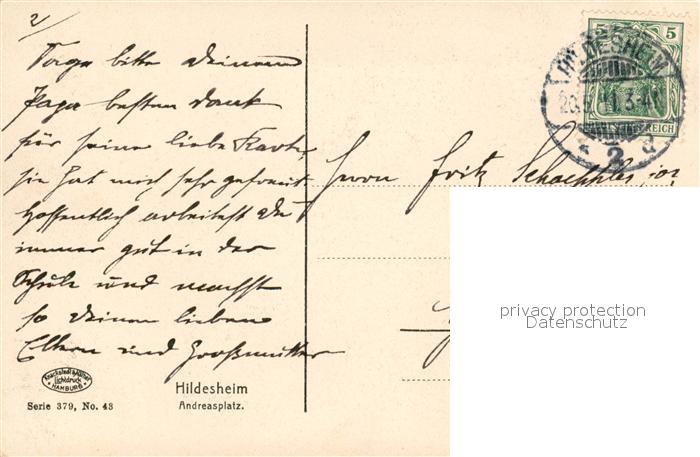 2/
Sage bitte deinem
Papa besten Dank
für seine liebe Karte,
sie hat mich sehr gefreut
hoffentlich arbeitest du
immer gut in der
Schule und machst
so deinen lieben
Eltern und Großmutter
Herrn Fritz Schaeppler jor,
5 5
HILDESHEIM
3-4
* 2 d
REICH
privacy protection
Datenschutz
Knackstedt & Näther
Lichtdruck
HAMBURG
Hildesheim
Andreasplatz.
Serie 379, No. 43